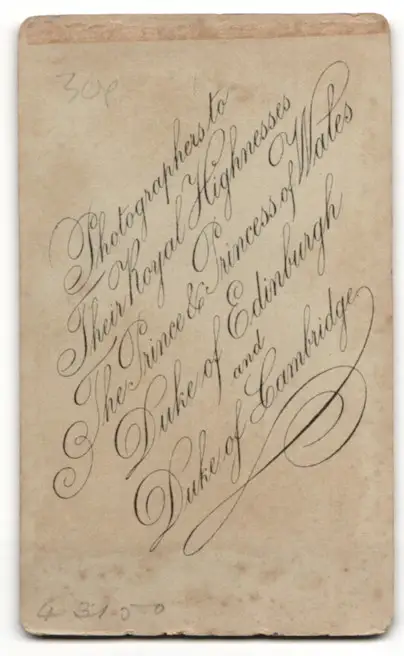 30p
Photographers to
Their Royal Highnesses
The Prince & Princess of Wales
Duke of Edinburgh
and
Duke of Cambridge
43150